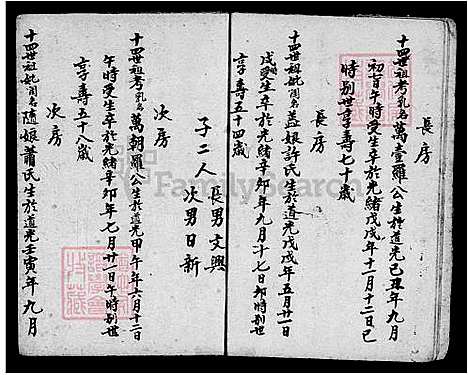 長房
十四世祖考乳名萬壹羅公生於道光己丑年九月
初旬午時受生卒於光緒戊戌年十一月十二日巳
時別世享壽七十歲
長房
十四世祖妣閨名益娘許氏生於道光戊戌年五月廿一日
戌受生卒於光緒辛卯年九月十七日卯時別世
享壽五十四歲
子二人 長男文興
次男日新
次房
十四世祖考乳名萬朝羅公生於道光甲午年六月十二日
午時受生卒於光緒辛卯年七月廿一日午時別世
享壽五十八歲
次房
十四世祖妣閨名隨娘蕭氏生於道光壬寅年九月
FamilySearch